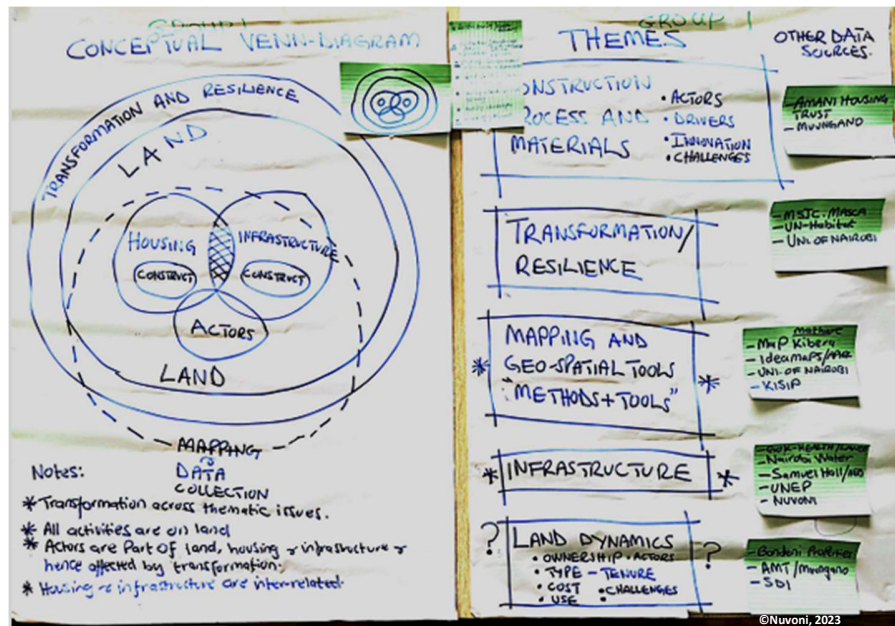 GROUP 1
CONCEPTUAL VENN-DIAGRAM
TRANSFORMATION AND RESILIENCE
LAND
HOUSING
INFRASTRUCTURE
CONSTRUCT
CONSTRUCT
ACTORS
LAND
MAPPING
DATA
COLLECTION
Notes:
* Transformation across thematic issues.
* All activities are on land
* Actors are part of land, housing & infrastructure &
hence affected by transformation.
* Housing & infrastructure are inter-related
GROUP 1
THEMES
OTHER DATA
SOURCES.
ONSTRUCTION
ROCESS AND
MATERIALS
• ACTORS
• DRIVERS
• INNOVATION
• CHALLENGES
- AMANI HOUSING
TRUST
- MUUNGANO
TRANSFORMATION/
RESILIENCE
- MSJC.
- UN-Habitat
- UNI. OF NAIROBI
* MAPPING AND
GEO-SPATIAL TOOLS
"METHODS + TOOLS" *
- Map Kibera
- UNI. OF NAIROBI
- KISIP
* INFRASTRUCTURE *
- Nairobi Water
- Samuel Hall
- UNEP
- NUVONI
? LAND DYNAMICS ?
• OWNERSHIP • ACTORS
• TYPE - TENURE
• COST • CHALLENGES
• USE •
- SDI
©Nuvoni, 2023